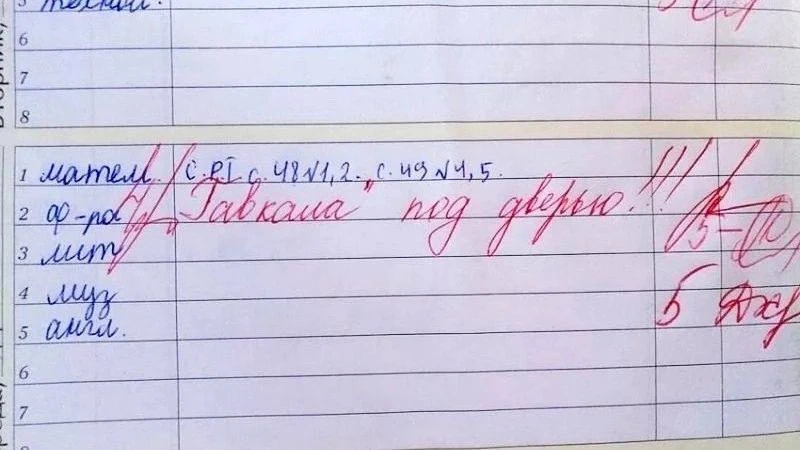 5
6
7
8
1 матем. С.РТ с. 48 №1, 2. с. 49 №4, 5.
2 ф-ра "Гавкала" под дверью!!!
3 лит 5-
4 муз
5 англ. 5
6
7